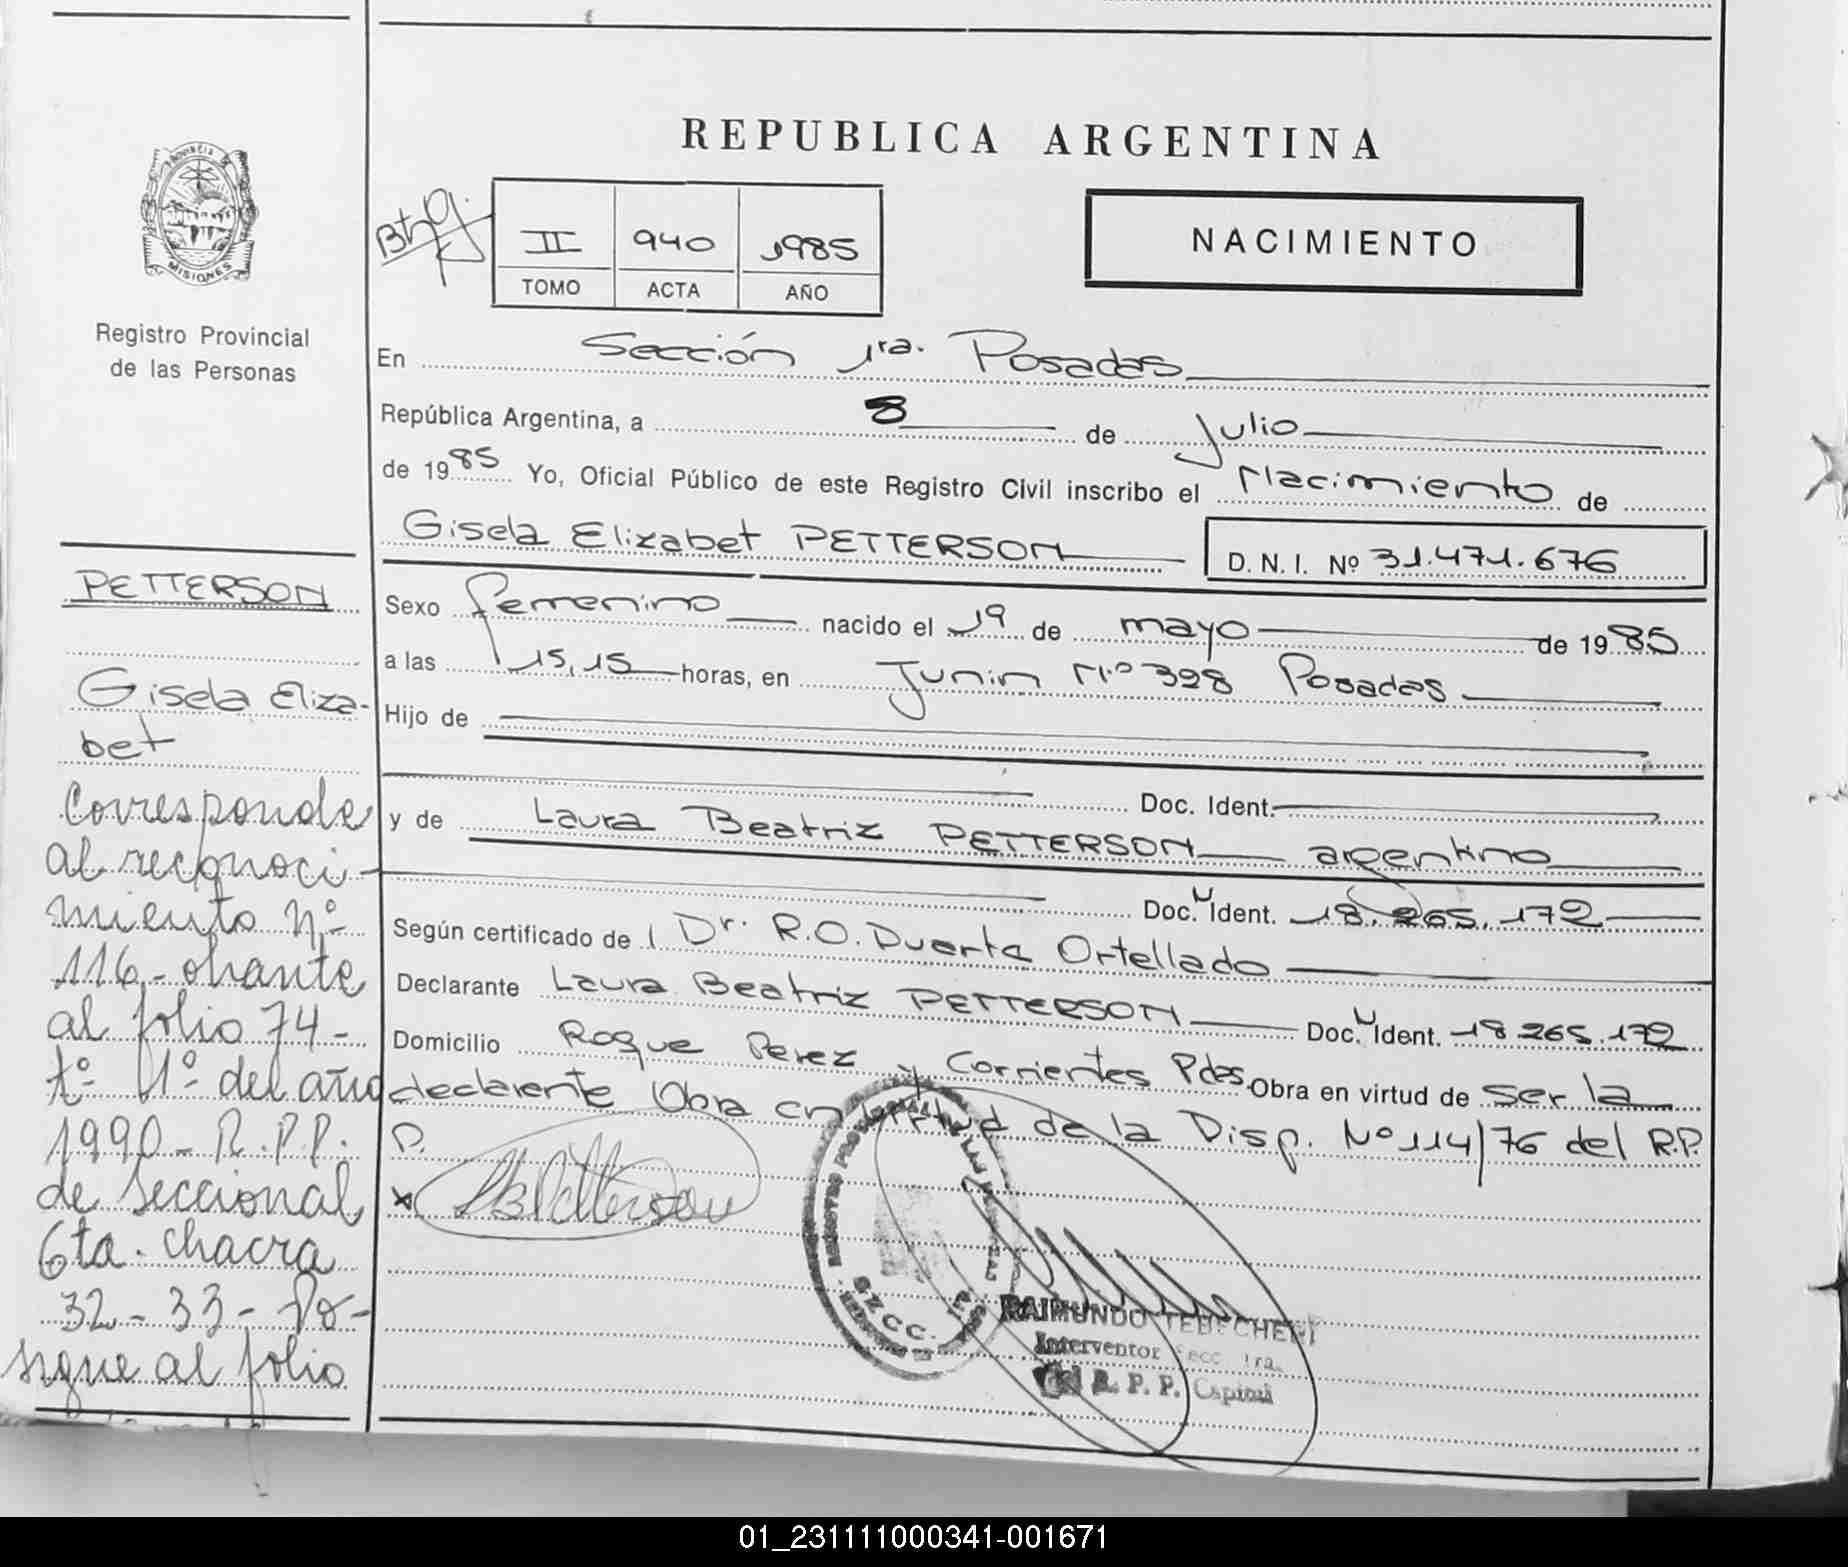 PROVINCIA DE
MISIONES
Registro Provincial
de las Personas
REPUBLICA ARGENTINA
II 940 1985
TOMO ACTA AÑO
NACIMIENTO
En Sección 1ra. Posadas
República Argentina, a 8 de Julio
de 1985 Yo, Oficial Público de este Registro Civil inscribo el Nacimiento de
Gisela Elizabet PETTERSON D. N. I. Nº 31.471.676
Sexo femenino nacido el 19 de mayo de 1985
a las 15,15 horas, en Junin Nº 328 Posadas
Hijo de
Doc. Ident.
y de Laura Beatriz PETTERSON argentina
Doc. Ident. 18.265.172
Según certificado de Dr. R.O. Duerta Ortellado
Declarante Laura Beatriz PETTERSON Doc. Ident. 18.265.172
Domicilio Roque Perez y Corrientes Pdas Obra en virtud de ser la
declarante Obra en virtud de la Disp. Nº 114/76 del R.P.
P.
RAIMUNDO
Interventor Secc. 1ra.
R. P. P. Capital
PETTERSON
Gisela Eliza-
bet
Corresponde
al reconoci-
miento nº
116 - obrante
al folio 74 -
tº 1º del año
1990 - R.P.P.
de Seccional
6ta. Chacra
32 - 33 - Po-
sigue al folio
01_231111000341-001671